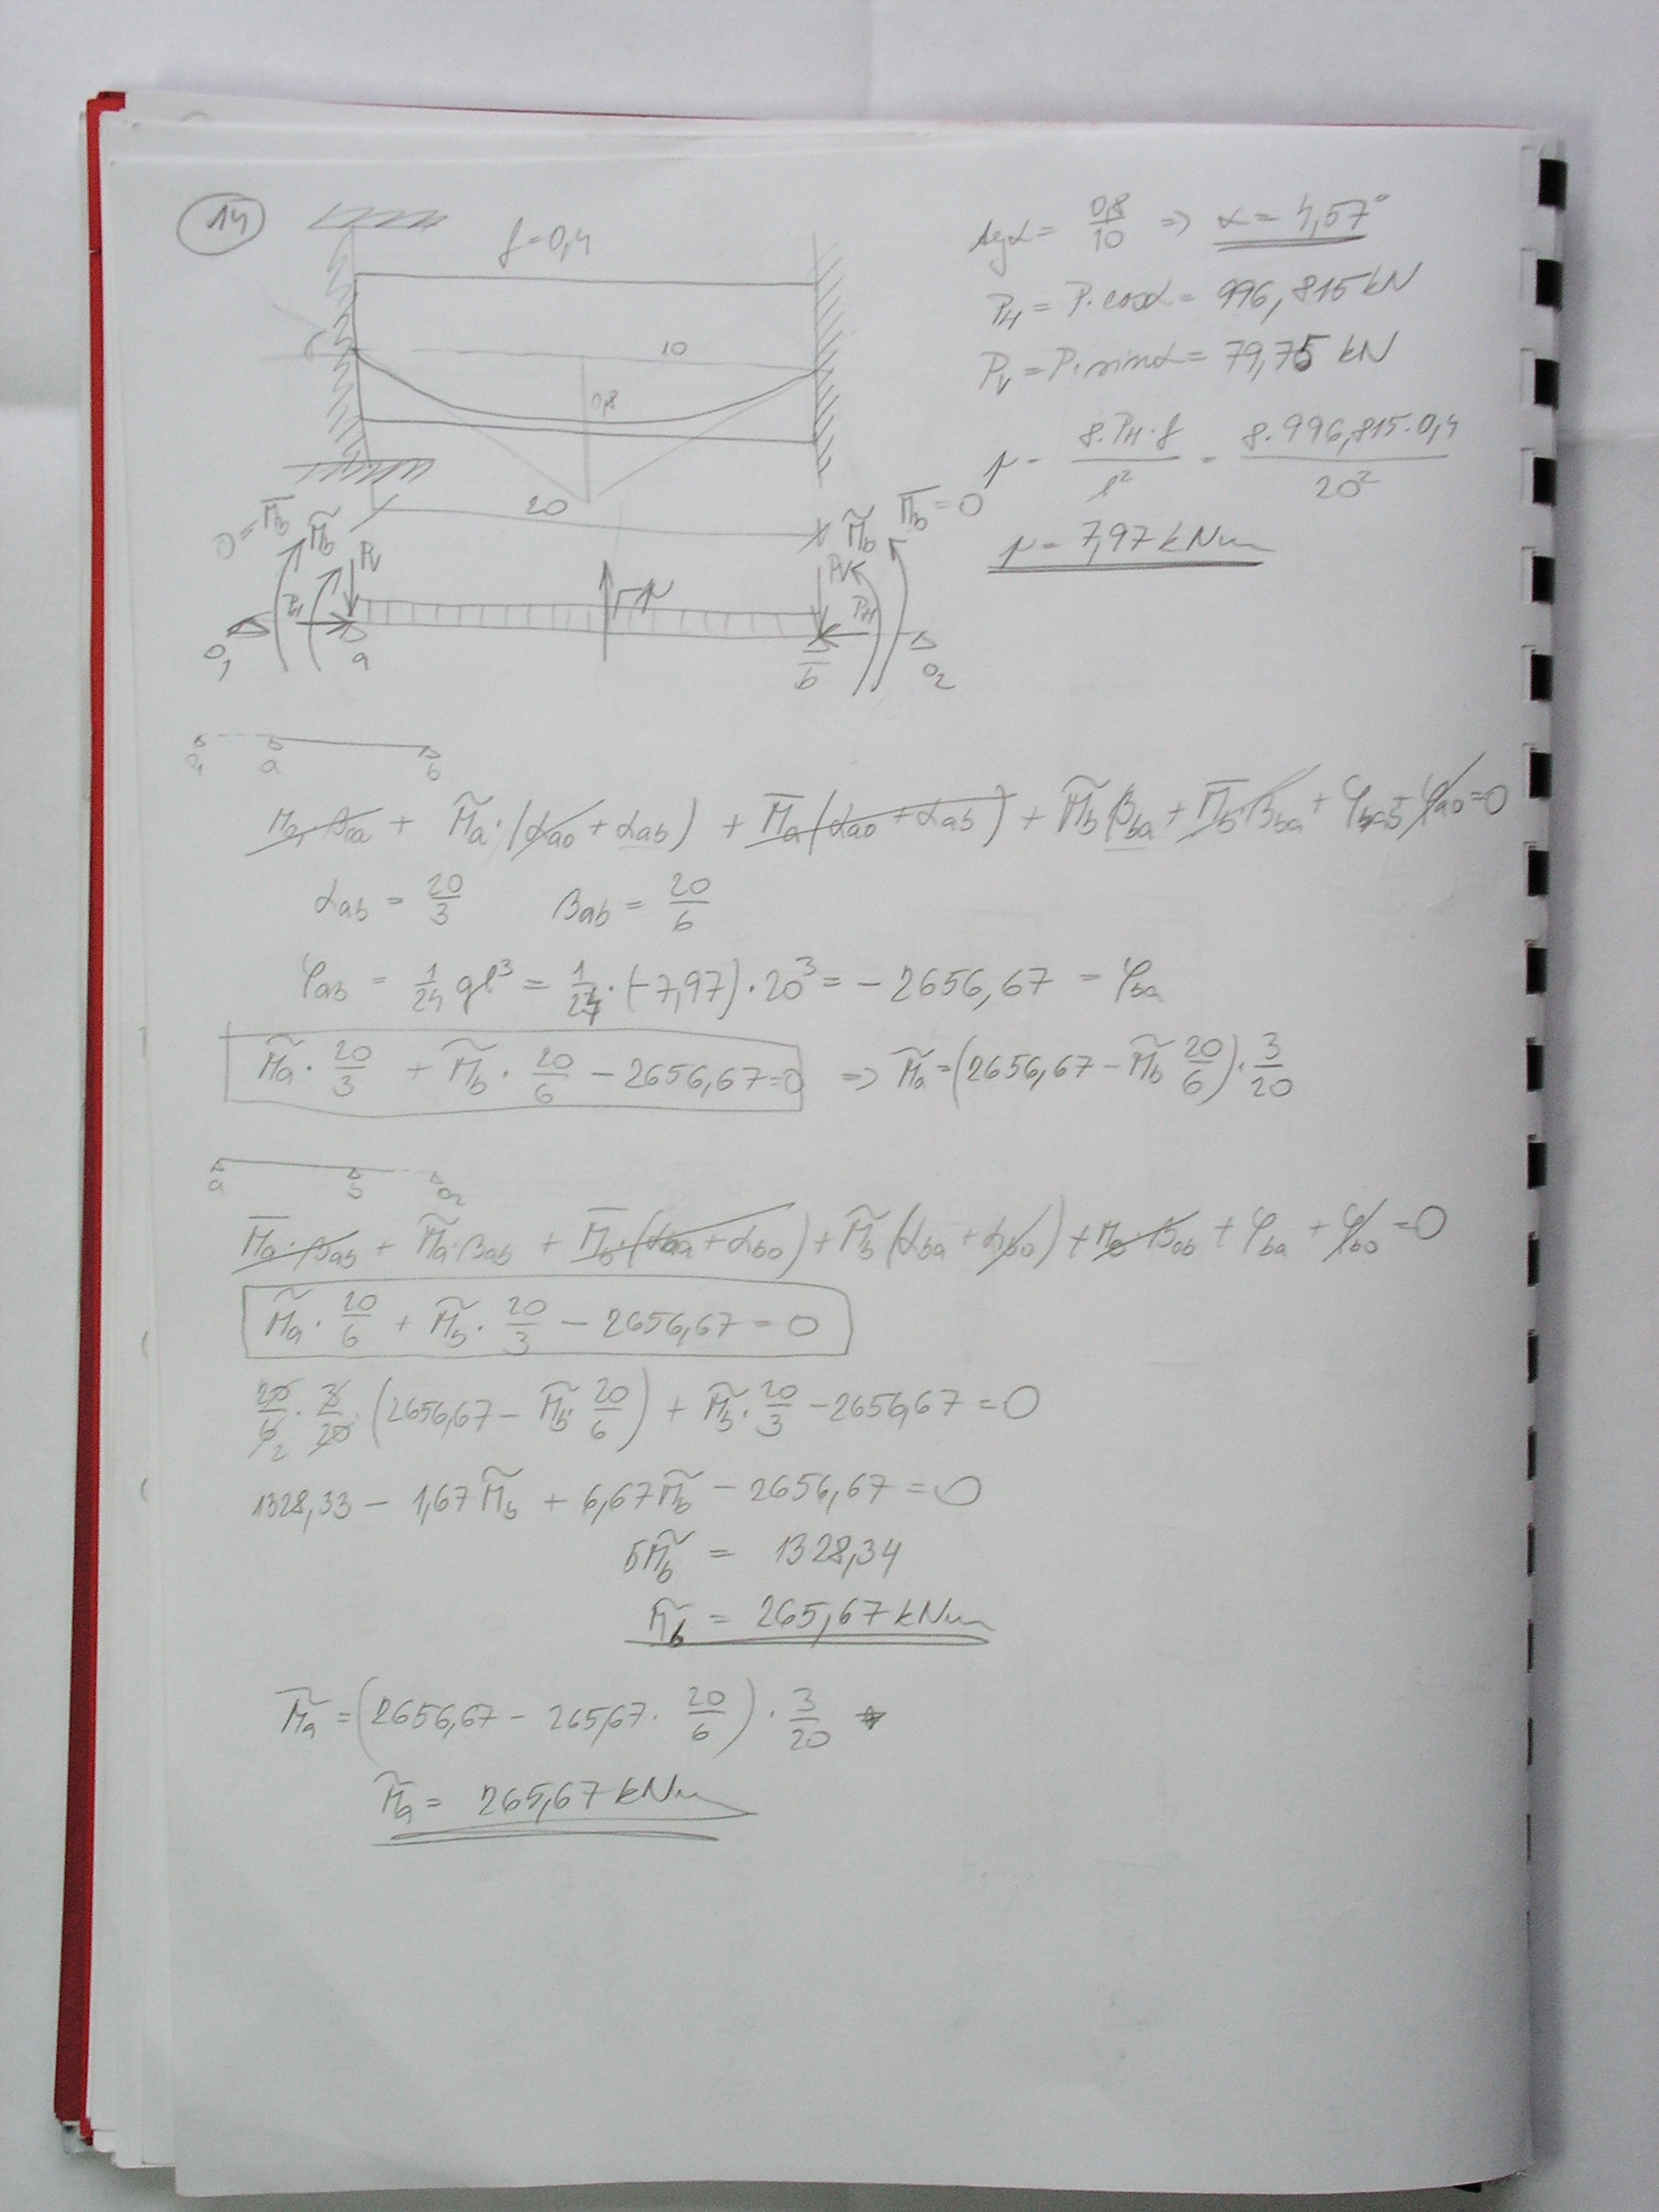 14
f=0,4
10
0,8
20
tgα = 0,8/10 ⇒ α = 4,57°
P_H = P·cosα = 996,815 kN
P_V = P·sinα = 79,75 kN
p = 8·P_H·f / l² = 8·996,815·0,4 / 20²
p = 7,97 kNm
0 = M̄_b M̃_b P_V p P_V M̃_b M̄_b = 0
0₁ P_H a b P_H 0₂
0₁ a b
M₀·β₀a + M̃a·(αa0 + αab) + M̄a(αa0 + αab) + M̃b βba + M̄b·βba + φab + φa0 = 0
αab = 20/3 βab = 20/6
φab = 1/24 ql³ = 1/24·(-7,97)·20³ = -2656,67 = φba
M̃a·20/3 + M̃b·20/6 - 2656,67 = 0 ⇒ M̃a = (2656,67 - M̃b 20/6)·3/20
a b 0₂
M̄a·βab + M̃a·βab + M̄b·(αba + αb0) + M̃b(αba + αb0) + M0·β0b + φba + φb0 = 0
M̃a·20/6 + M̃b·20/3 - 2656,67 = 0
20/6·3/20·(2656,67 - M̃b·20/6) + M̃b·20/3 - 2656,67 = 0
1328,33 - 1,67M̃b + 6,67M̃b - 2656,67 = 0
5M̃b = 1328,34
M̃b = 265,67 kNm
M̃a = (2656,67 - 265,67·20/6)·3/20
M̃a = 265,67 kNm